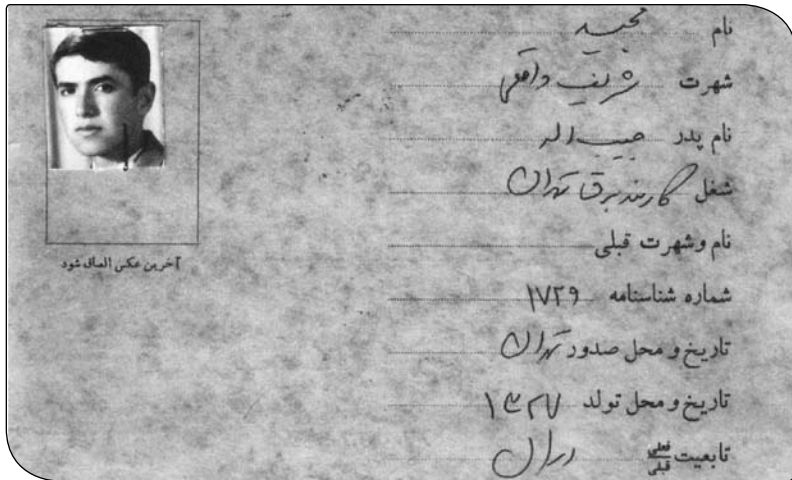 نام مجید
شهرت شریف واقفی
نام پدر حبیب الله
شغل کارمند برق تهران
نام وشهرت قبلی
شماره شناسنامه ۱۷۲۹
تاریخ و محل صدور تهران
تاریخ و محل تولد ۱۳۲۷
تابعیت فعلی قبلی ایران
آخرین عکس الصاق شود